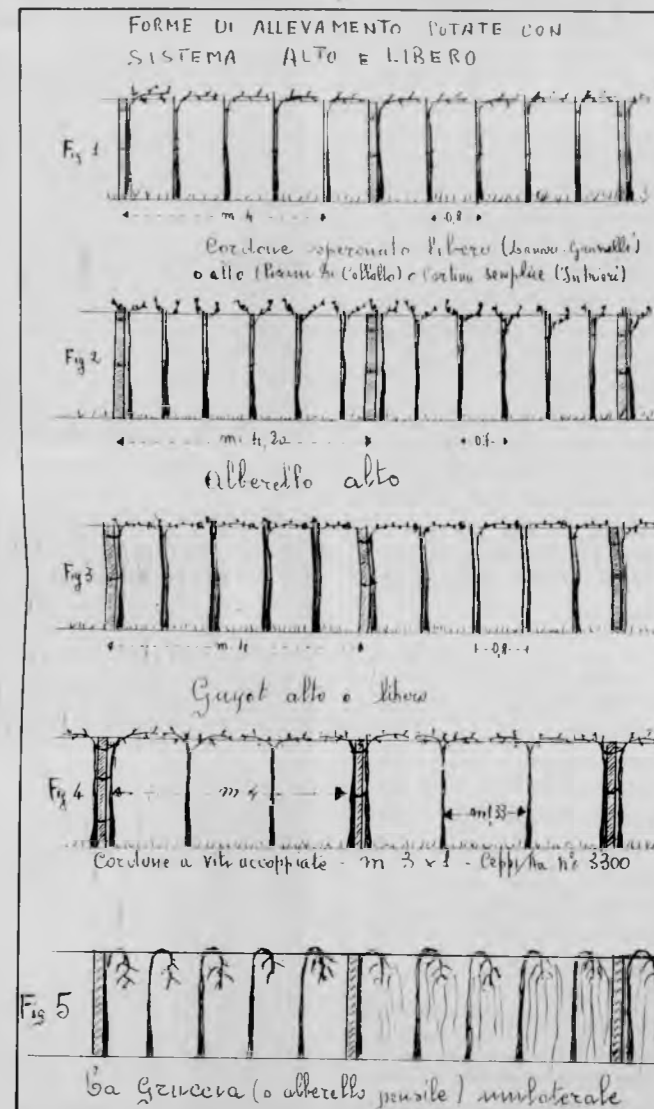 FORME DI ALLEVAMENTO POTATE CON
SISTEMA ALTO E LIBERO
Fig 1
m 4
0,8
Cordone speronato libero
o alto o Cortina semplice (Intrieri)
Fig 2
m. 4,20
0,7
Alberello alto
Fig 3
m. 4
0,8
Guyot alto o libero
Fig 4
m 4
m 1,33
Cordone a viti accoppiate - m 3 x 1 - Ceppi/ha n° 3300
Fig 5
La Gruccia (o alberello pensile) unilaterale